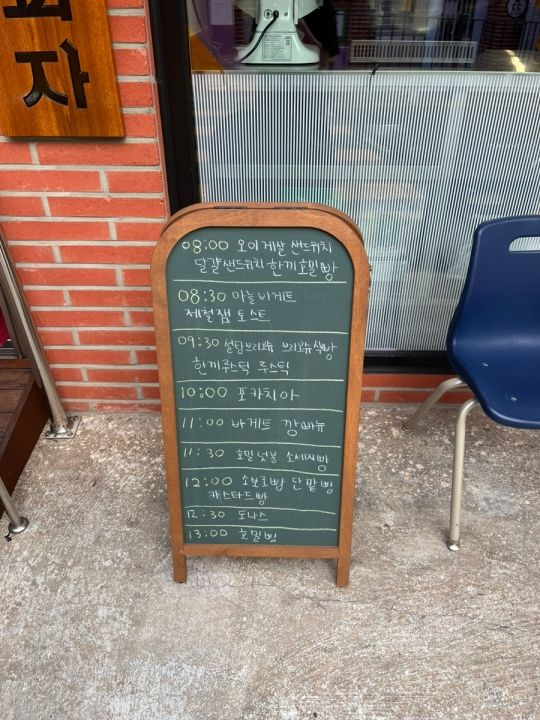 과자
08:00 오이게살 샌드위치
달걀샌드위치 한끼호밀빵
08:30 마늘바게트
제철잼 토스트
09:30 설탕브리오슈 브리오슈식빵
한끼루스틱 루스틱
10:00 포카치아
11:00 바게트 깜빠뉴
11:30 호밀넛봉 소세지빵
12:00 소보로빵 단팥빵
카스타드빵
12:30 도나스
13:00 호밀빵